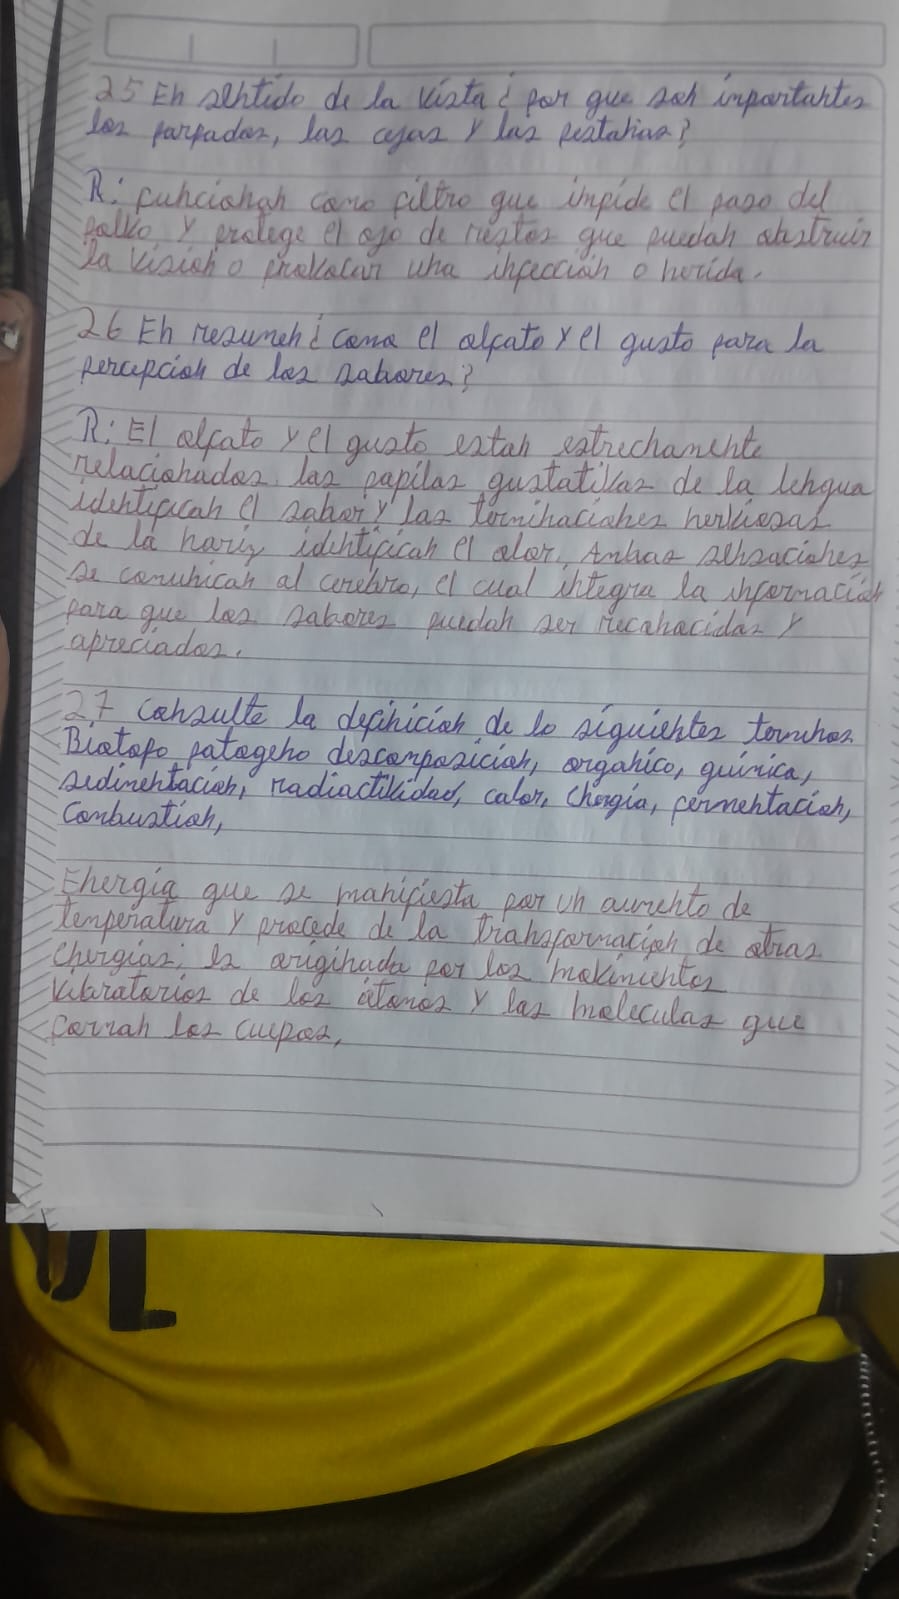 25 En sentido de la vista ¿ por que son importantes
los parpados, las cejas y las pestañas?
R: funcionan como filtro que impide el paso del
polvo y protege el ojo de restos que puedan obstruir
la visión o provocar una infección o herida.
26 En resumen ¿ como el olfato y el gusto para la
percepción de los sabores?
R: El olfato y el gusto estan estrechamente
relacionados. las papilas gustativas de la lengua
identifican el sabor y las terminaciones nerviosas
de la nariz identifican el olor. Ambas sensaciones
se comunican al cerebro, el cual integra la información
para que los sabores puedan ser reconocidos y
apreciados.
27 consulte la definición de lo siguientes terminos
Biotopo patogeno descomposición, organico, quimica,
sedimentación, radiactividad, calor, energía, fermentación,
Combustion,
Energía que se manifiesta por un aumento de
temperatura y procede de la transformación de otras
energias; es originada por los movimientos
vibratorios de los átomos y las moleculas que
forman los cuepos,